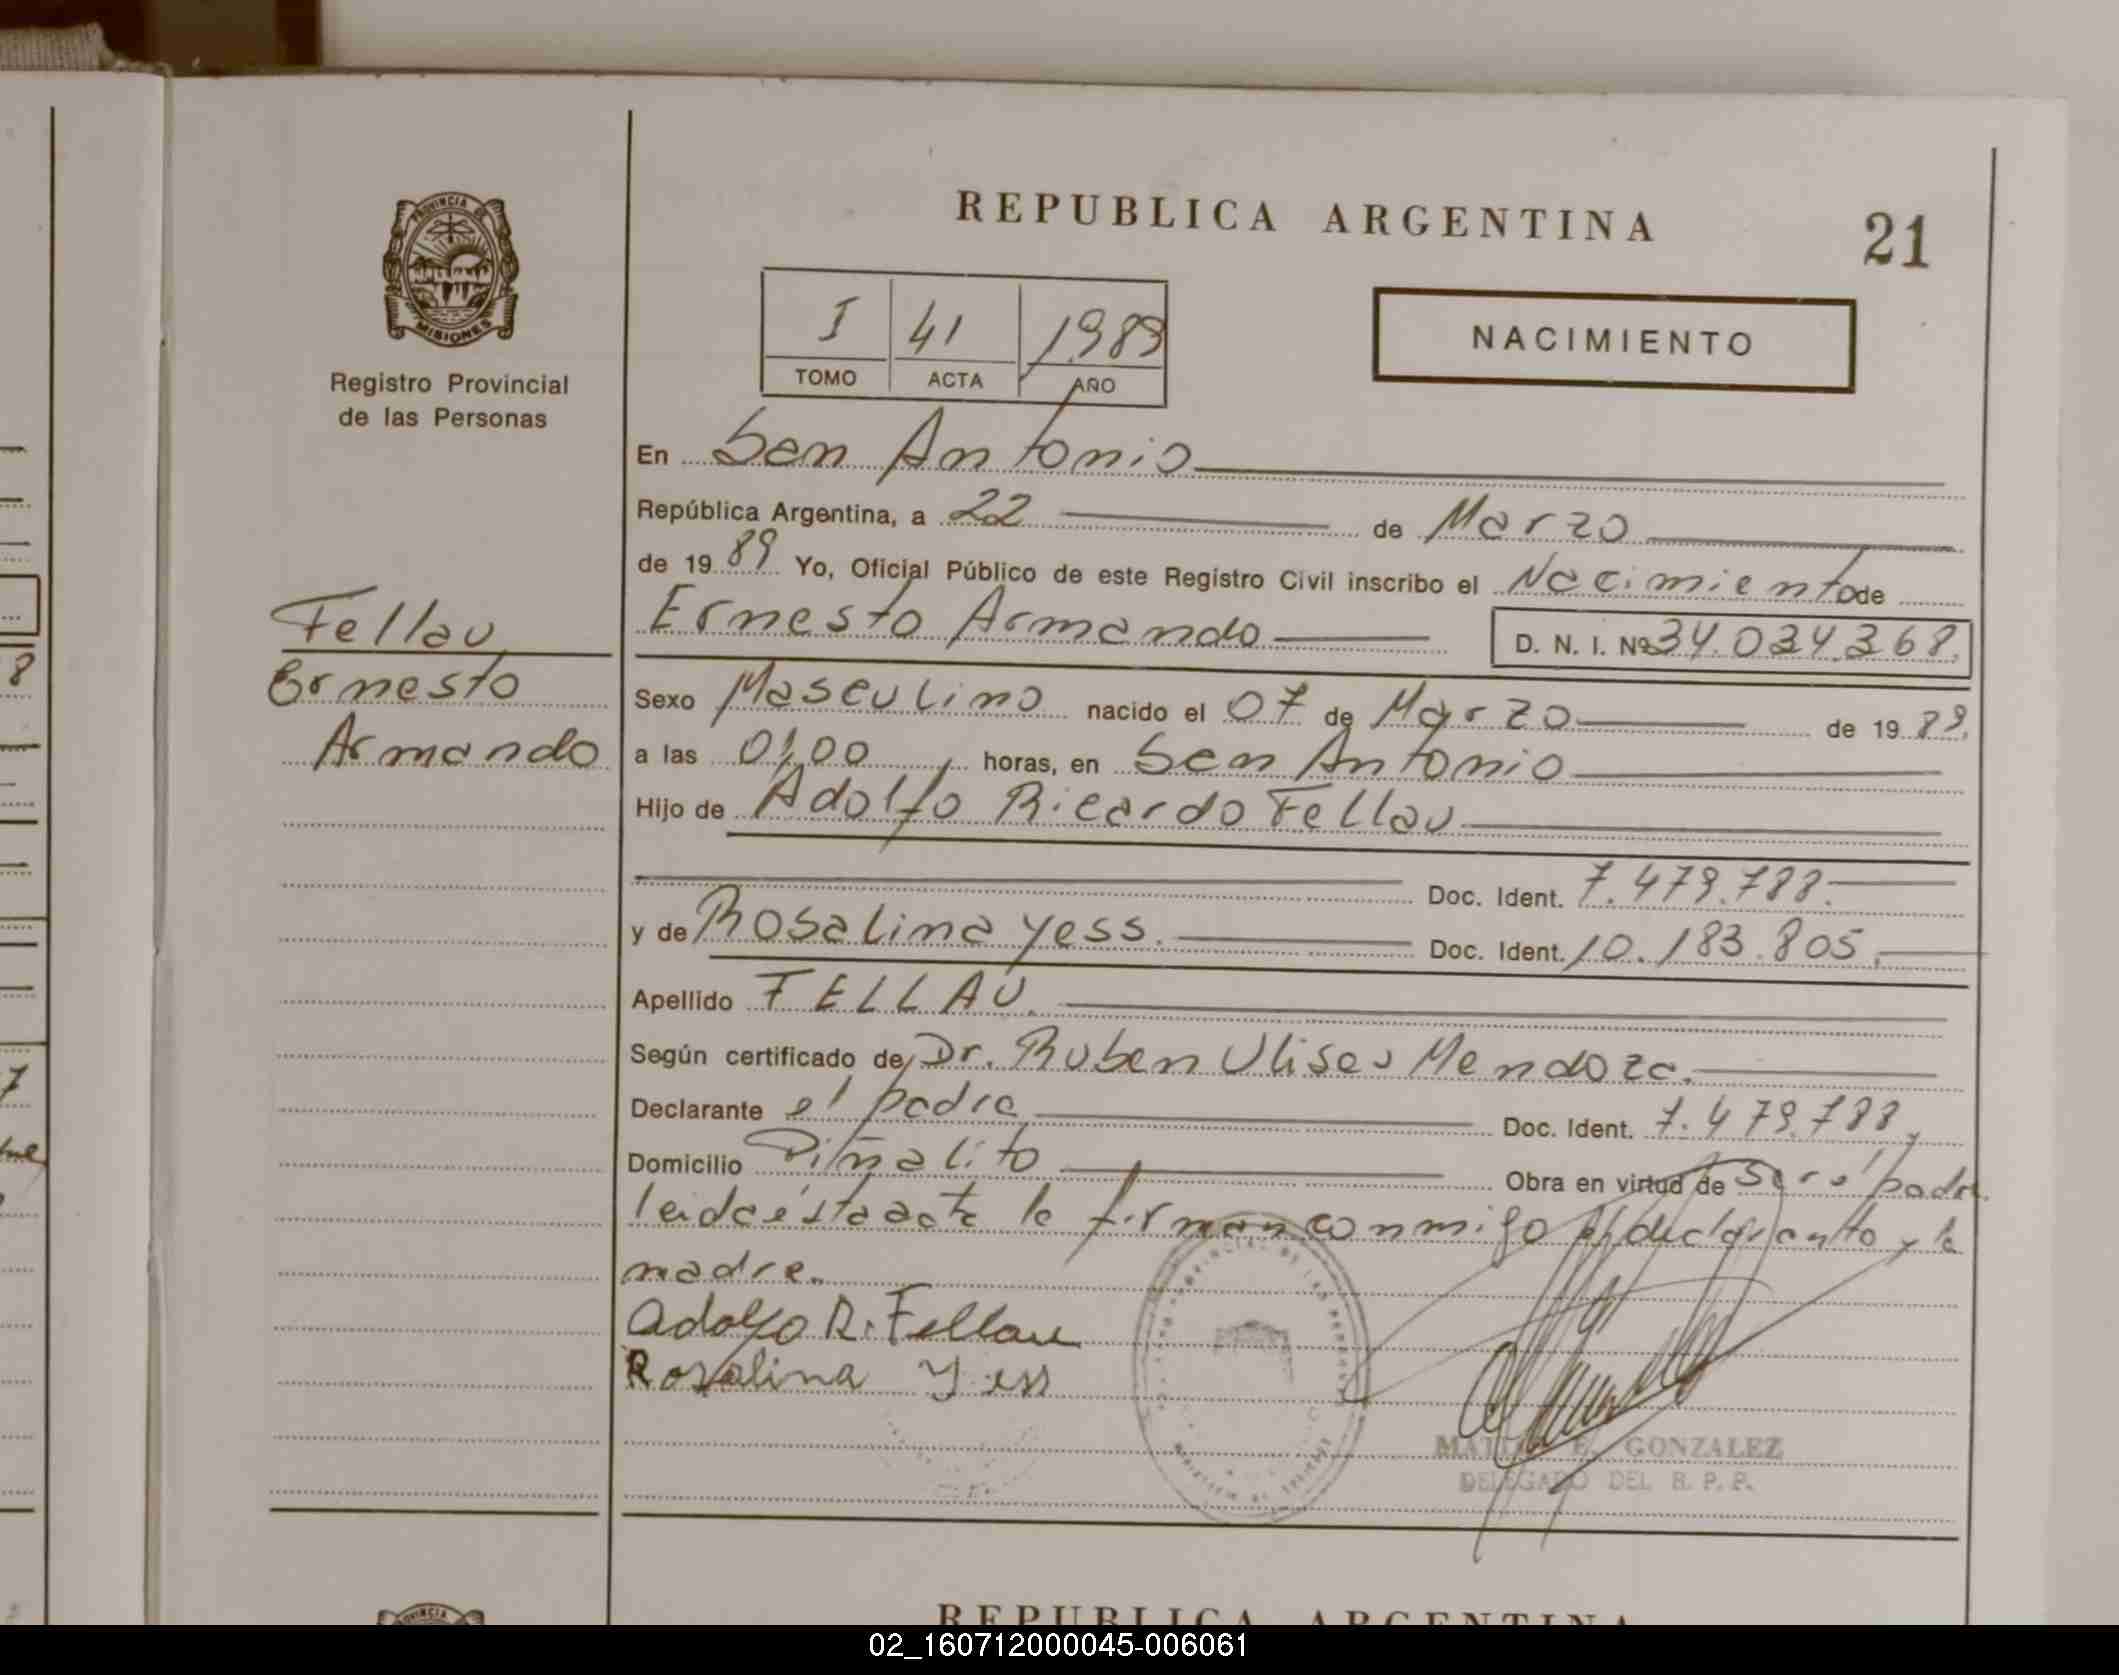 REPUBLICA ARGENTINA
21
PROVINCIA DE
MISIONES
Registro Provincial
de las Personas
I 41 1989
TOMO ACTA AÑO
NACIMIENTO
En San Antonio
República Argentina, a 22 de Marzo
de 19 89 Yo, Oficial Público de este Registro Civil inscribo el Nacimiento de
Ernesto Armando D. N. I. Nº 34.034.368.
Fellau
Ernesto
Armando
Sexo Masculino nacido el 07 de Marzo de 19 89.
a las 01,00 horas, en San Antonio
Hijo de Adolfo Ricardo Fellau
Doc. Ident. 7.479.788.
y de Rosalina Yess. Doc. Ident. 10.183.805.
Apellido FELLAU.
Según certificado de Dr. Ruben Ulises Mendoza.
Declarante el padre Doc. Ident. 7.479.788,
Domicilio Piñalito Obra en virtud de ser el padre
leida ésta acta la firman conmigo el declarante y la
madre.
Adolfo R. Fellau
Rosalina Yess
E. GONZALEZ
DELEGADO DEL R. P. P.
REPUBLICA ARGENTINA
02_160712000045-006061